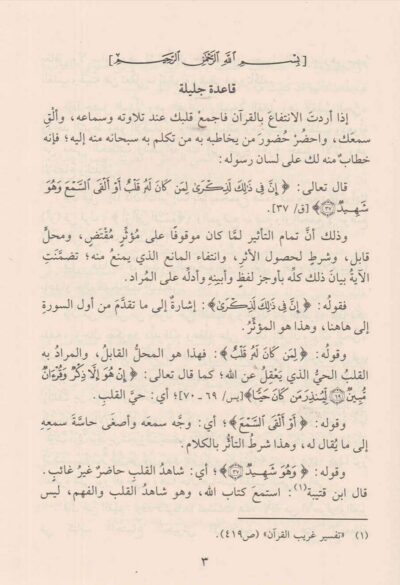 [بِسْمِ اللَّهِ الرَّحْمَٰنِ الرَّحِيمِ]
قاعدة جليلة
إذا أردتَ الانتفاعَ بالقرآن فاجمعْ قلبك عند تلاوته وسماعه، وألْقِ
سمعَك، واحضُرْ حُضورَ من يخاطبه به من تكلم به سبحانه منه إليه؛ فإنه
خطابٌ منه لك على لسان رسوله:
قال تعالى: ﴿إِنَّ فِي ذَٰلِكَ لَذِكْرَىٰ لِمَن كَانَ لَهُ قَلْبٌ أَوْ أَلْقَى السَّمْعَ وَهُوَ
شَهِيدٌ ﴿٣٧﴾﴾ [ق/ ٣٧].
وذلك أنَّ تمام التأثير لمَّا كان موقوفًا على مُؤثِّرٍ مُقْتَضٍ، ومحلٍّ
قابل، وشرطٍ لحصول الأثر، وانتفاء المانع الذي يمنع منه؛ تضمَّنَتِ
الآيةُ بيانَ ذلك كلِّه بأوجزِ لفظٍ وأبينِه وأدلِّه على المُراد.
فقولُه: ﴿إِنَّ فِي ذَٰلِكَ لَذِكْرَىٰ﴾: إشارةٌ إلى ما تقدَّمَ من أول السورةِ
إلى هاهنا، وهذا هو المؤثِّرُ.
وقولُه: ﴿لِمَن كَانَ لَهُ قَلْبٌ﴾: فهذا هو المحلُّ القابلُ، والمرادُ به
القلبُ الحيُّ الذي يَعْقِلُ عن الله؛ كما قال تعالى: ﴿إِنْ هُوَ إِلَّا ذِكْرٌ وَقُرْءَانٌ
مُّبِينٌ ﴿٦٩﴾ لِّيُنذِرَ مَن كَانَ حَيًّا﴾ [يس/ ٦٩ - ٧٠]؛ أي: حيَّ القلبِ.
وقوله: ﴿أَوْ أَلْقَى السَّمْعَ﴾؛ أي: وجَّه سمعَه وأصغَى حاسَّةَ سمعِه
إلى ما يُقال له، وهذا شرطُ التأثُّر بالكلام.
وقوله: ﴿وَهُوَ شَهِيدٌ ﴿٣٧﴾﴾؛ أي: شاهدُ القلبِ حاضرٌ غيرُ غائبٍ.
قال ابن قتيبة(١): استمعَ كتابَ الله، وهو شاهدُ القلب والفهم، ليس
(١) «تفسير غريب القرآن» (ص٤١٩).
٣